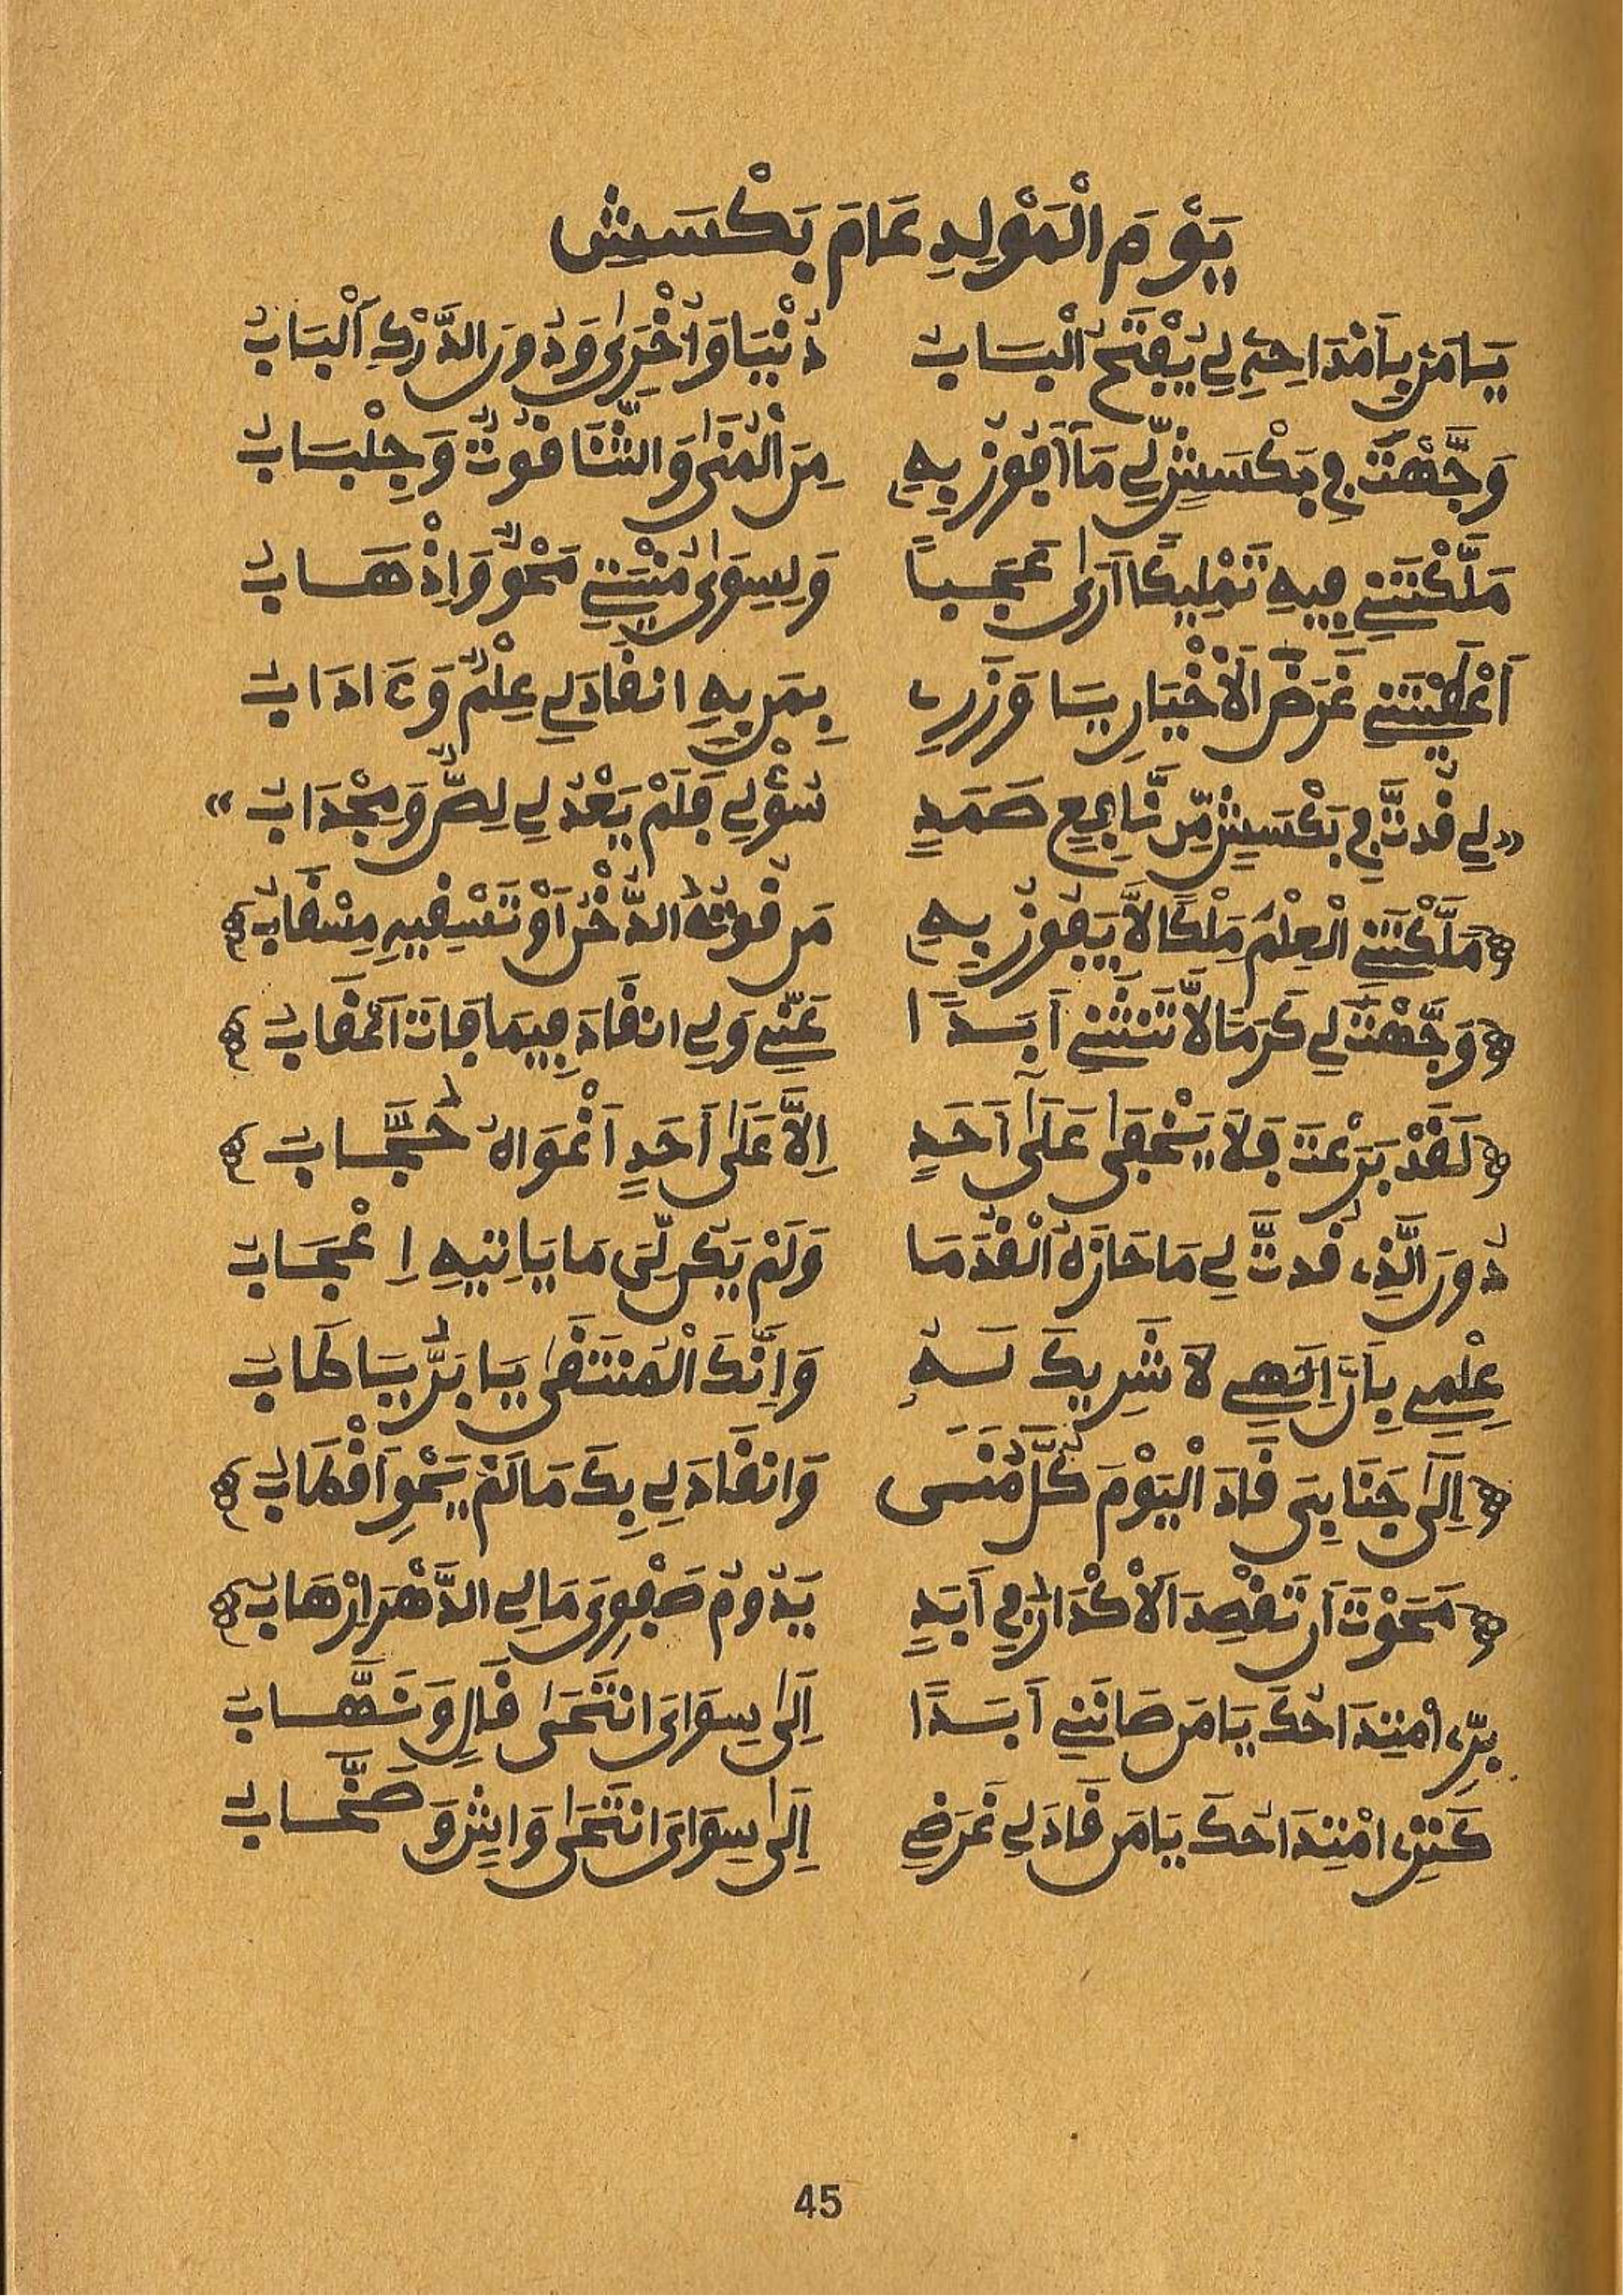 يَوْمَ الْمَوْلِدِ عَامَ بَكْسَشٍ
يَا مَن بِأَمْدَاحِهِ لِي يُفْتَحُ الْبَابُ دُنْيَا وَأُخْرَىٰ وَدُونَ الدَّرْكِ أَلْبَابُ
وَجَّهْتَ فِي بَكْسَشٍ لِّي مَا أَفُوزُ بِهِ مِنَ الْمُنَىٰ وَالثَّنَا قُوتٌ وَجِلْبَابُ
مَلَّكْتَنِي فِيهِ تَمْلِيكًا أَرَىٰ عَجَبًا وَلِسِوَىٰ مُنْيَتِي مَحْوٌ وَإِذْهَابُ
أَعْطَيْتَنِي غَرَضَ الْأَخْيَارِ يَا وَزَرِي بِمَن بِهِ انقَادَ لِي عِلْمٌ وَءَادَابُ
«لِي قُدتَّ فِي بَكْسَشٍ مِّن نَّافِعٍ صَمَدٍ سُؤْلِي فَلَمْ يَعْدُ لِي لِصٌّ وَمِجْدَابُ»
﴿مَلَّكْتَنِي الْعِلْمَ مِلْكًا لَّا يَفُوزُ بِهِ مَن قُوتُهُ الدُّخْنُ أَوْ تَسْقِيهِ مِسْقَابُ﴾
﴿وَجَّهْتَ لِي كَرَمًا لَّا تَنثَنِي أَبَدًا عَنِّي وَلِي انقَادَ فِيمَا فَاتَ أَعْقَابُ﴾
﴿لَقَدْ بَرَعْتَ فَلَا يَخْفَىٰ عَلَىٰ أَحَدٍ إِلَّا عَلَىٰ أَحَدٍ أَغْوَاهُ حُجَّابُ﴾
دُونَ الَّذِي قُدتَّ لِي مَا حَازَهُ الْقُدَمَا وَلَمْ يَكُن لِّيَ مَا يَاتِيهِ إِعْجَابُ
عِلْمِي بِأَنَّ إِلَٰهِي لَا شَرِيكَ لَهُ وَإِنَّكَ الْمُنتَقَىٰ يَا بَرُّ يَا طَابُ
﴿إِلَىٰ جَنَابِيَ قَادَ الْيَوْمَ كُلَّ مُنًى وَانقَادَ لِي بِكَ مَا لَمْ يَحْوِ أَقْطَابُ﴾
﴿مَحَوْتَ أَن تَقْصِدَ الْأَكْدَارُ فِي أَبَدٍ يَدُومُ صَفْوِي وَمَا لِي الدَّهْرَ إِرْهَابُ﴾
بِرِّي امْتِدَاحُكَ يَا مَن صَانَنِي أَبَدًا إِلَىٰ سِوَايَ انتَحَىٰ قَالٍ وَنَهَّابُ
كَنزِي امْتِدَاحُكَ يَا مَن قَادَ لِي غَرَضِي إِلَىٰ سِوَايَ انتَحَىٰ وَاشٍ وَصَخَّابُ
45